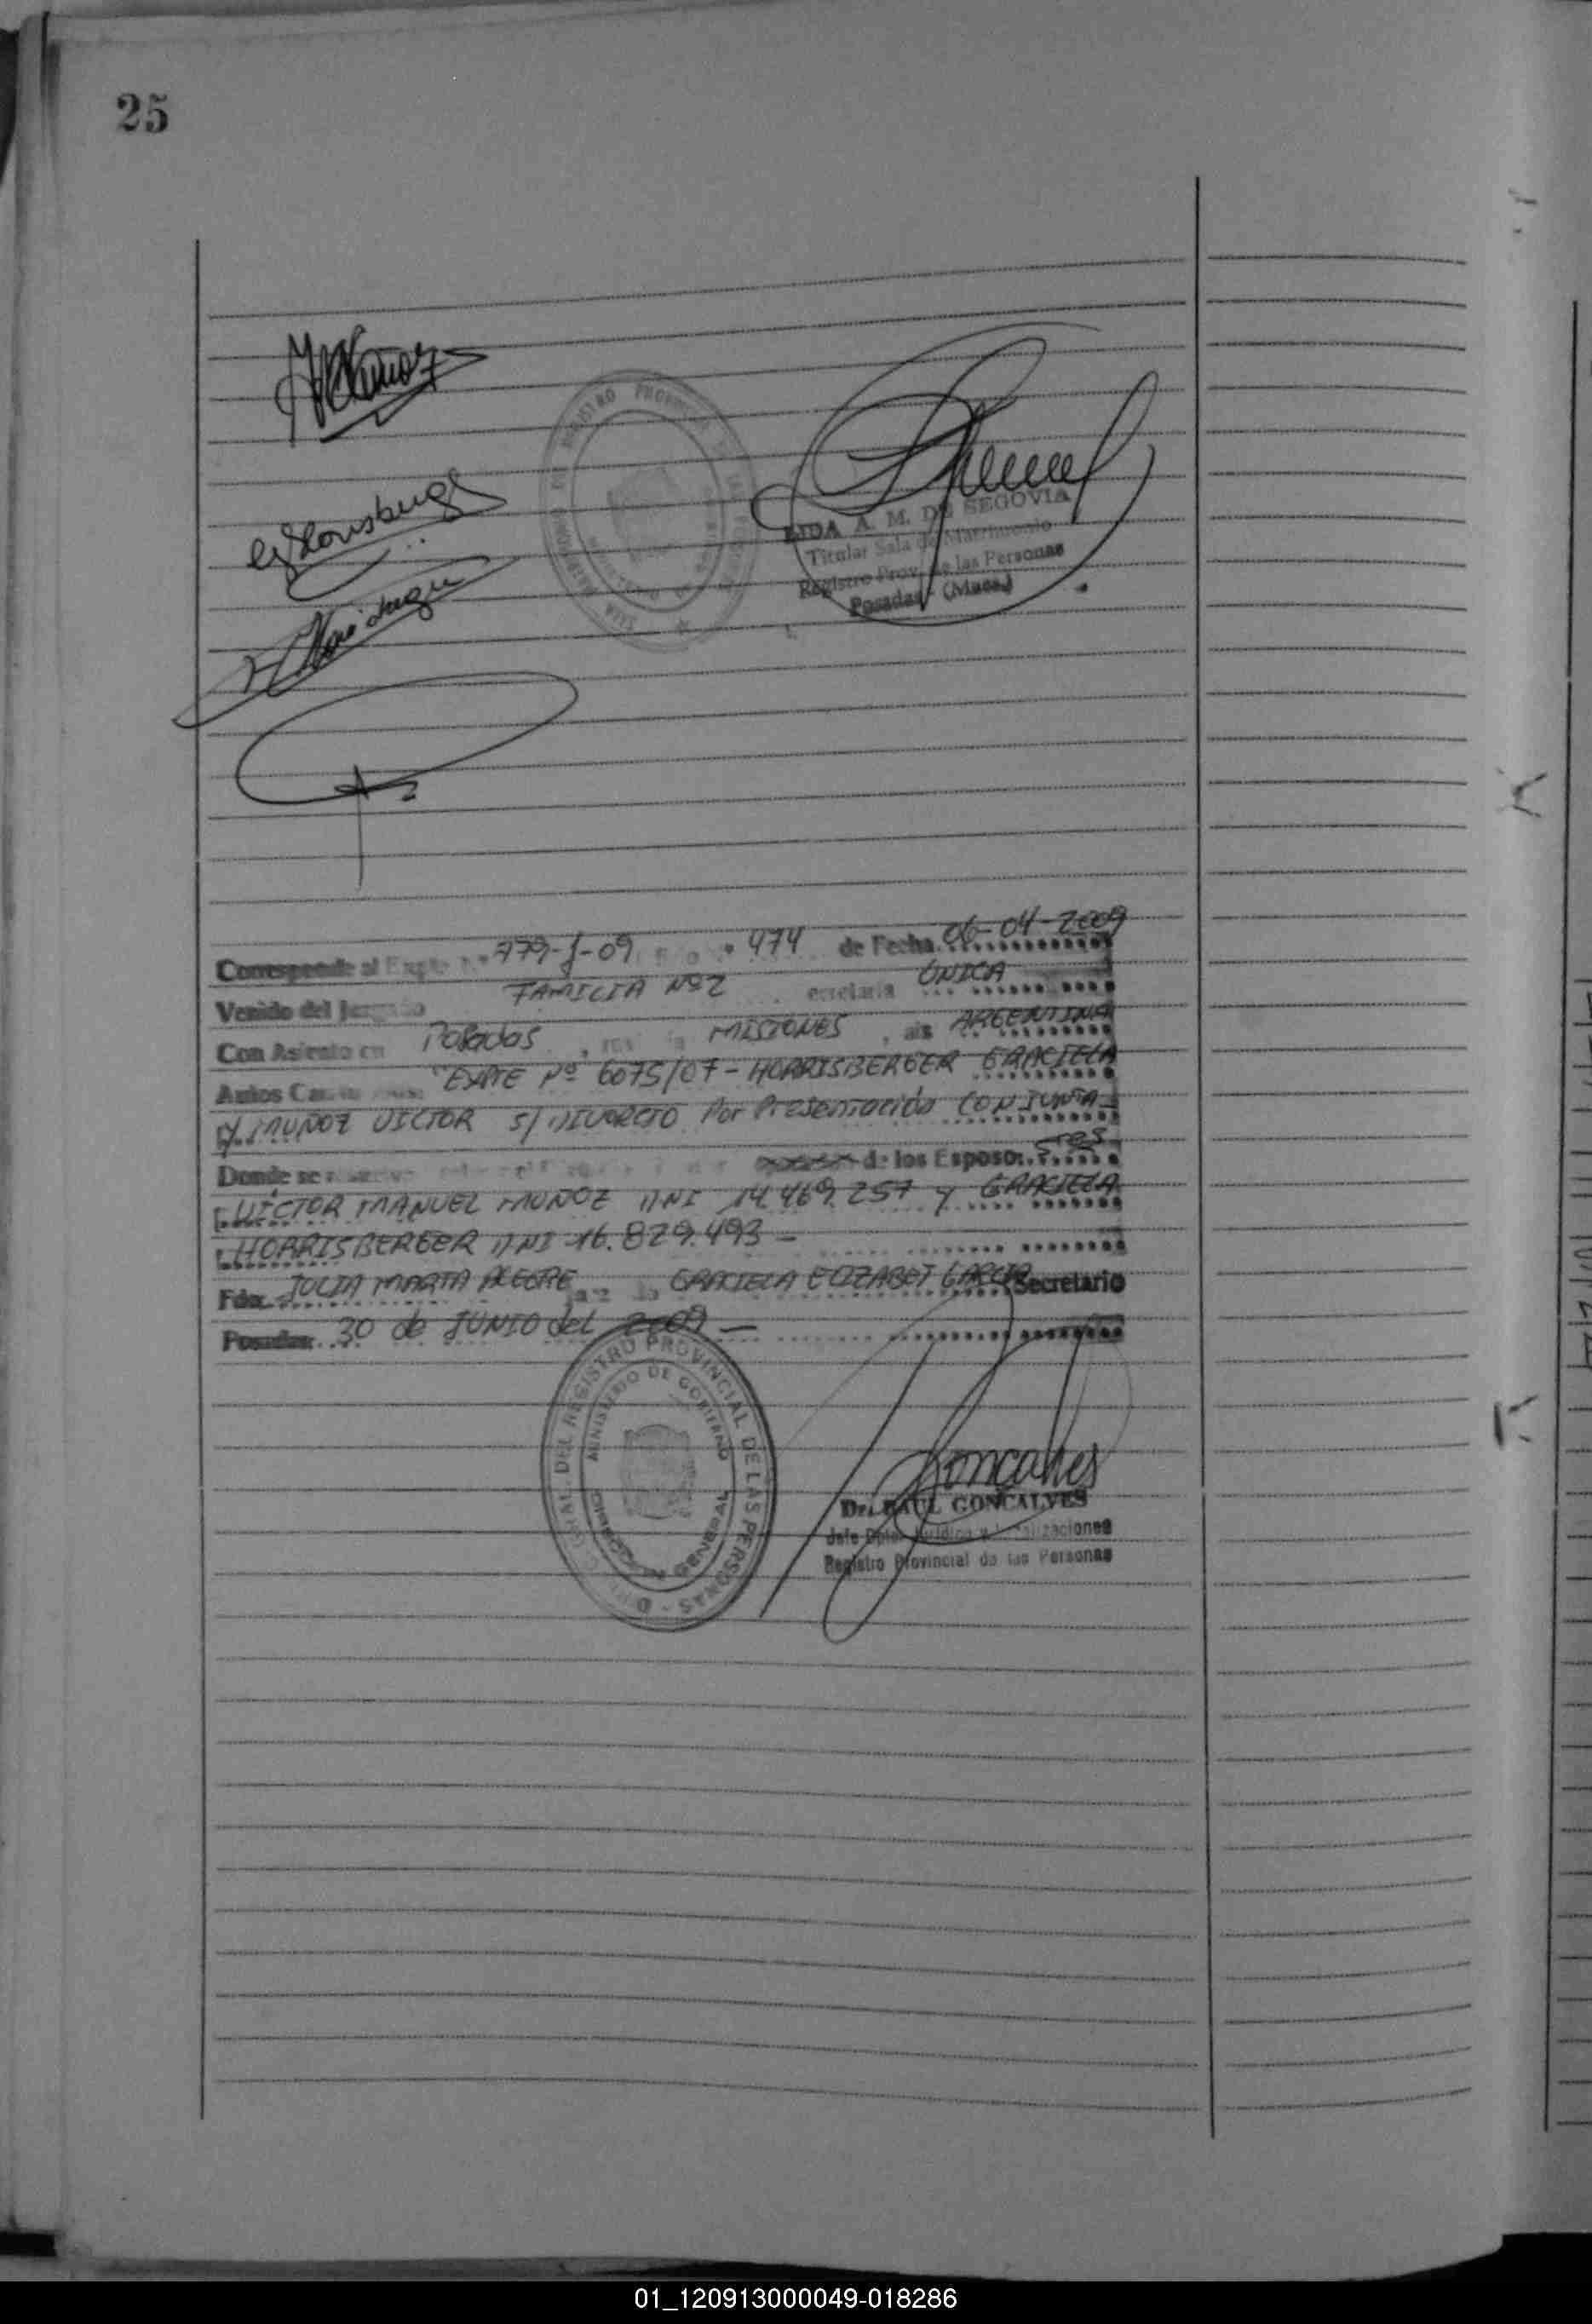 25
LIDA A. M. DE SEGOVIA
Titular Sala de Matrimonio
Registro Prov. de las Personas
Posadas - (Mnes.)
Corresponde al Expte 779-J-09 474 de Fecha 06-04-2009
Venido del Juzgado FAMILIA Nº 2 ecretaría ÚNICA
Con Asiento en Posadas, MISIONES, ais ARGENTINA
Autos "EXPTE Nº 6075/07 - HORRISBERGER GRACIELA
Y MUÑOZ VICTOR S/ DIVORCIO Por Presentación CONJUNTA
Donde se de los Esposos: Sres
VÍCTOR MANUEL MUÑOZ DNI 14.469.257 y GRACIELA
HORRISBERGER DNI 16.829.493 -
Fdo. JULIA MARTA ALEGRE GRACIELA ELIZABET GARCIA Secretario
Posadas 30 de JUNIO del 2009 —
DEL REGISTRO PROVINCIAL DE LAS PERSONAS
MINISTERIO DE GOBIERNO
DIRECCION GENERAL
Goncalves
Dr. RAUL GONCALVES
Jefe Dpto. Jurídico y
Registro Provincial de las Personas
01_120913000049-018286